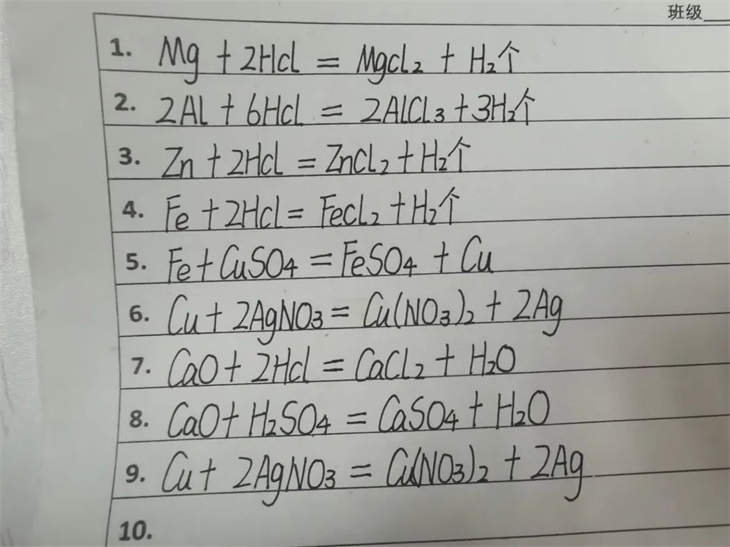 班级
1. Mg + 2HCl = MgCl₂ + H₂↑
2. 2Al + 6HCl = 2AlCl₃ + 3H₂↑
3. Zn + 2HCl = ZnCl₂ + H₂↑
4. Fe + 2HCl = FeCl₂ + H₂↑
5. Fe + CuSO₄ = FeSO₄ + Cu
6. Cu + 2AgNO₃ = Cu(NO₃)₂ + 2Ag
7. CaO + 2HCl = CaCl₂ + H₂O
8. CaO + H₂SO₄ = CaSO₄ + H₂O
9. Cu + 2AgNO₃ = Cu(NO₃)₂ + 2Ag
10.